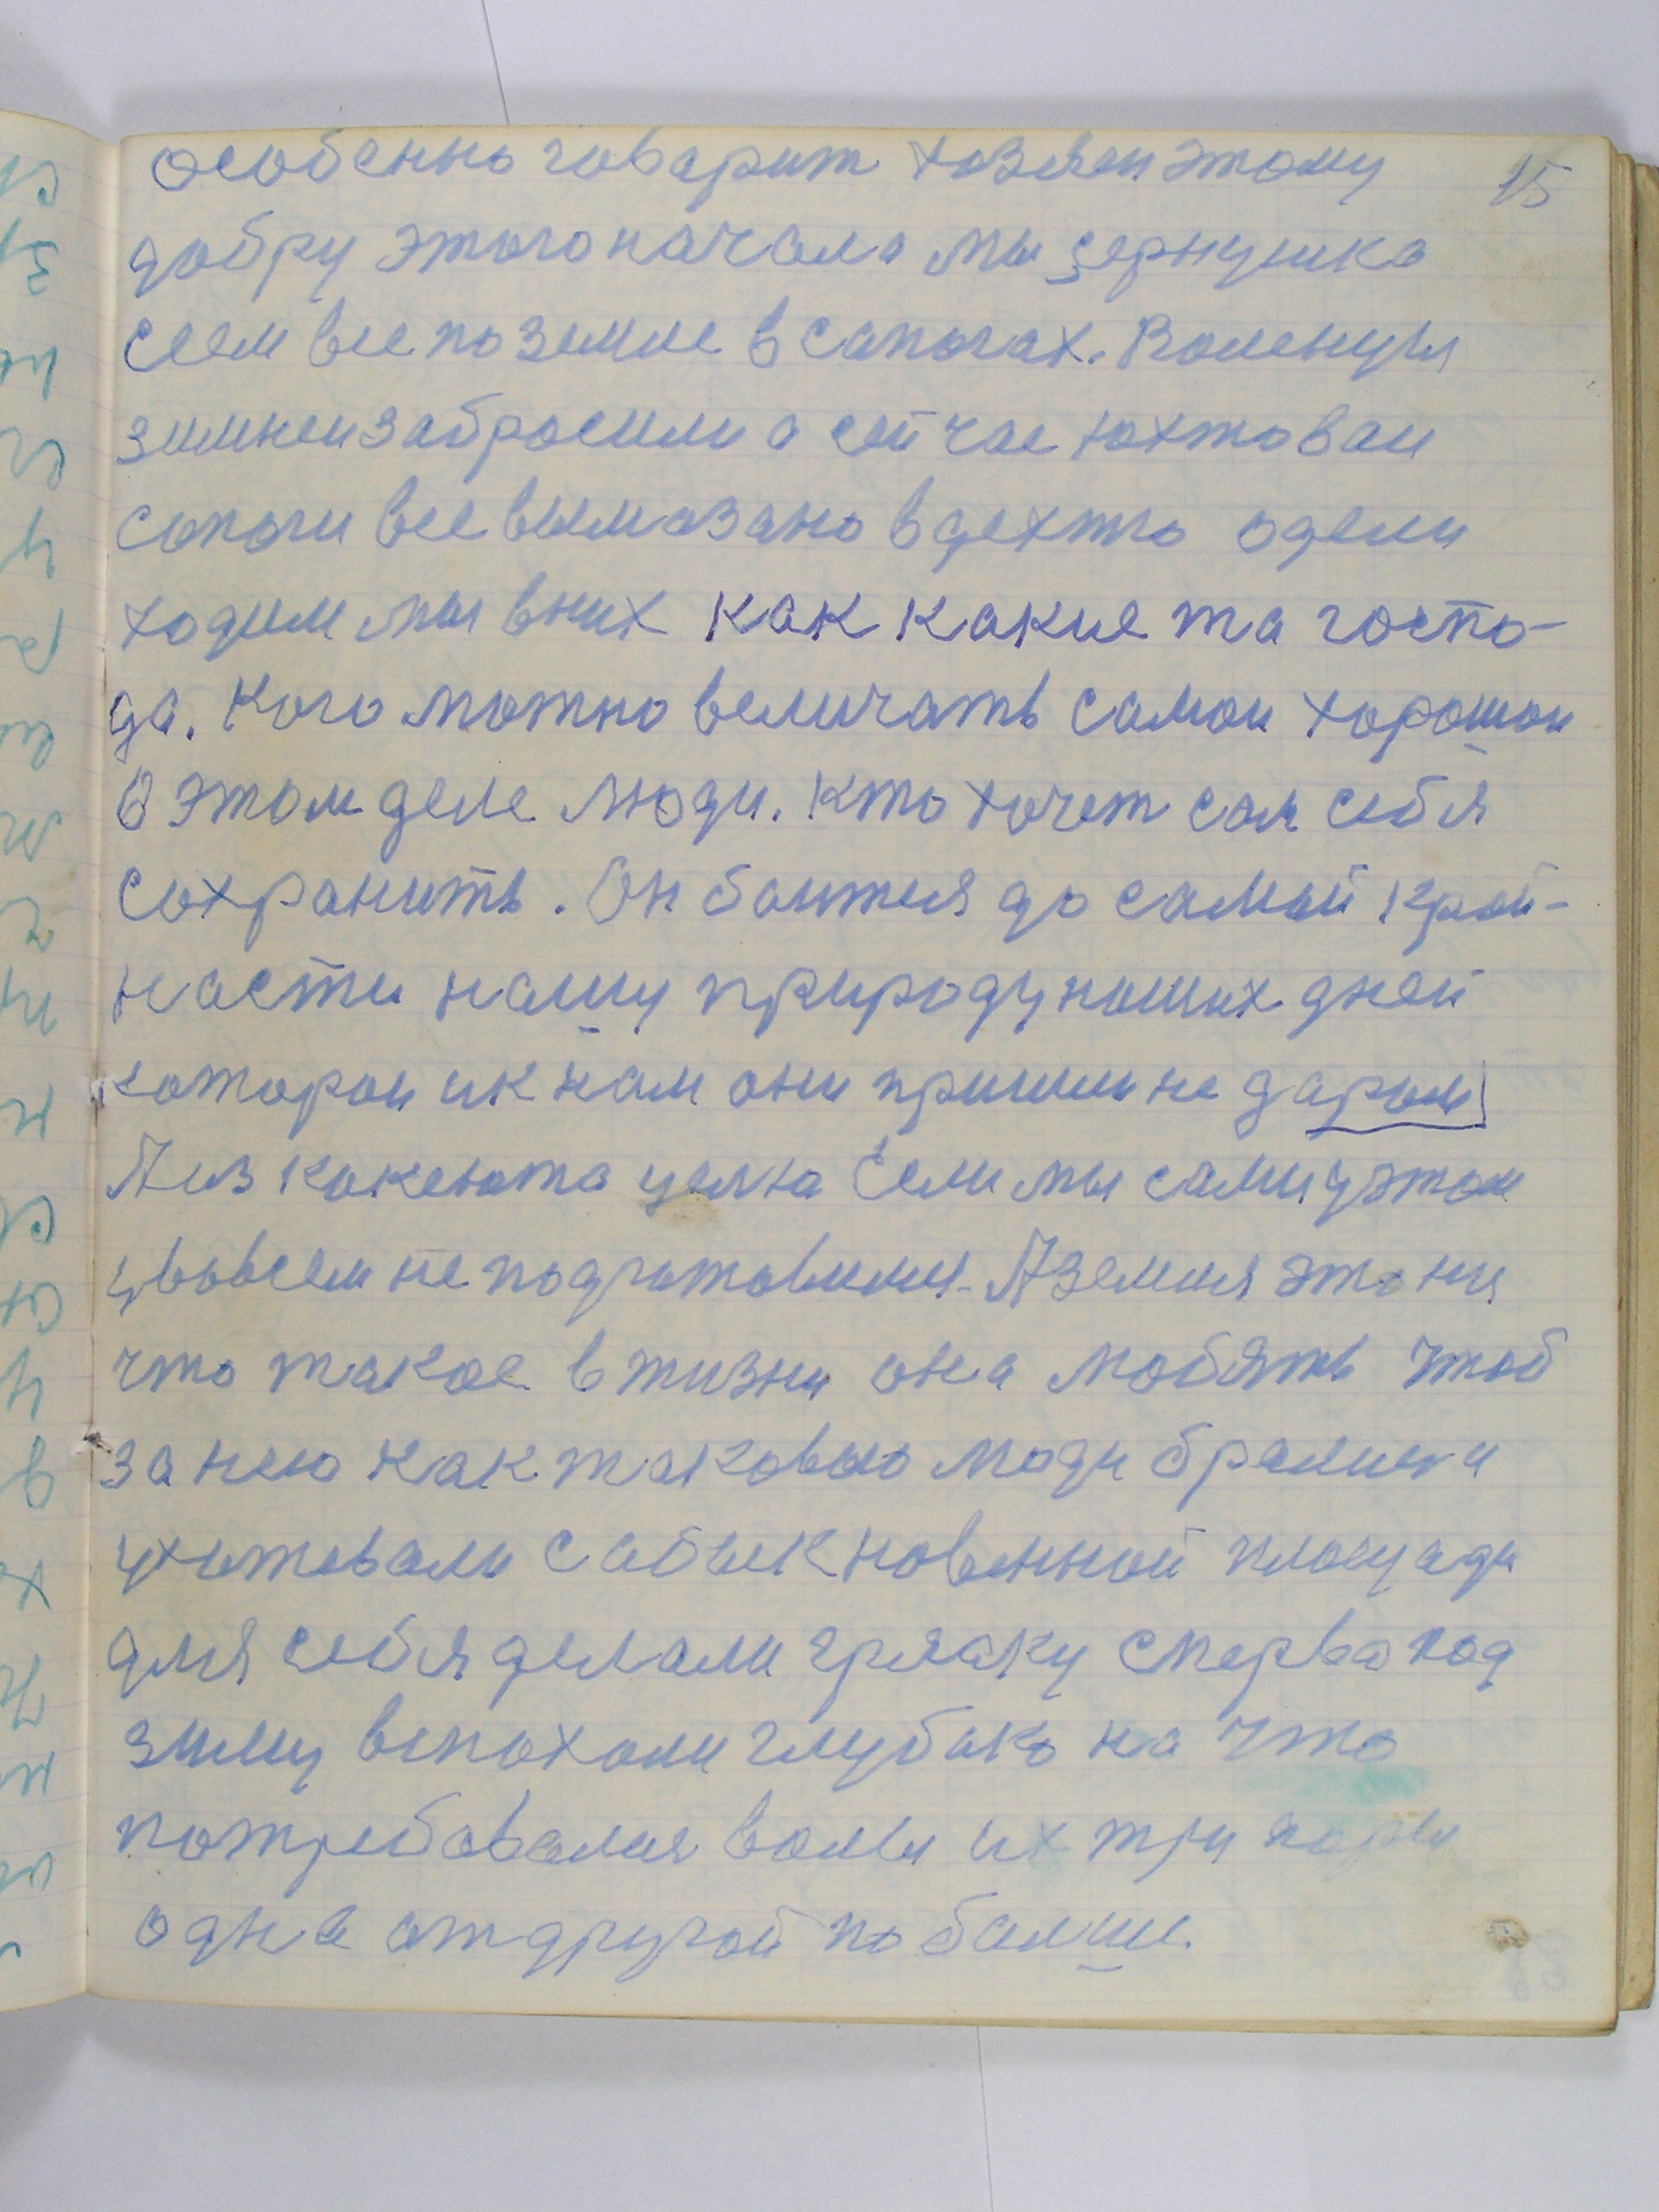 15
особенно говарит хозяеи этому
добру этого начала мы зернушка
сеем все по земле в сапогах. Воленцы
зимнеи забросили а сей час юхтоваи
сапоги все вымазано в дехтю одели
ходим мы в них как какие та госпо-
да. Кого можно величать самои хорошои
в этом деле люди. Кто хочет сам себя
сохранить. Он боится до самый край-
насти нашу природу наших дней
которои ик нам они пришли не даром
А из какеюта целю если мы сами у этом
у вовсем не подготовилиь. А земля это ни
что такое в жизни она любять чтоб
за нею как таковыю люди бралися
ухажевали с абыкновенной площади
для себя делали грязку сперва под
зиму вспохали глубако на что
потребовалися волы их три пары
одна отдругой по балше.